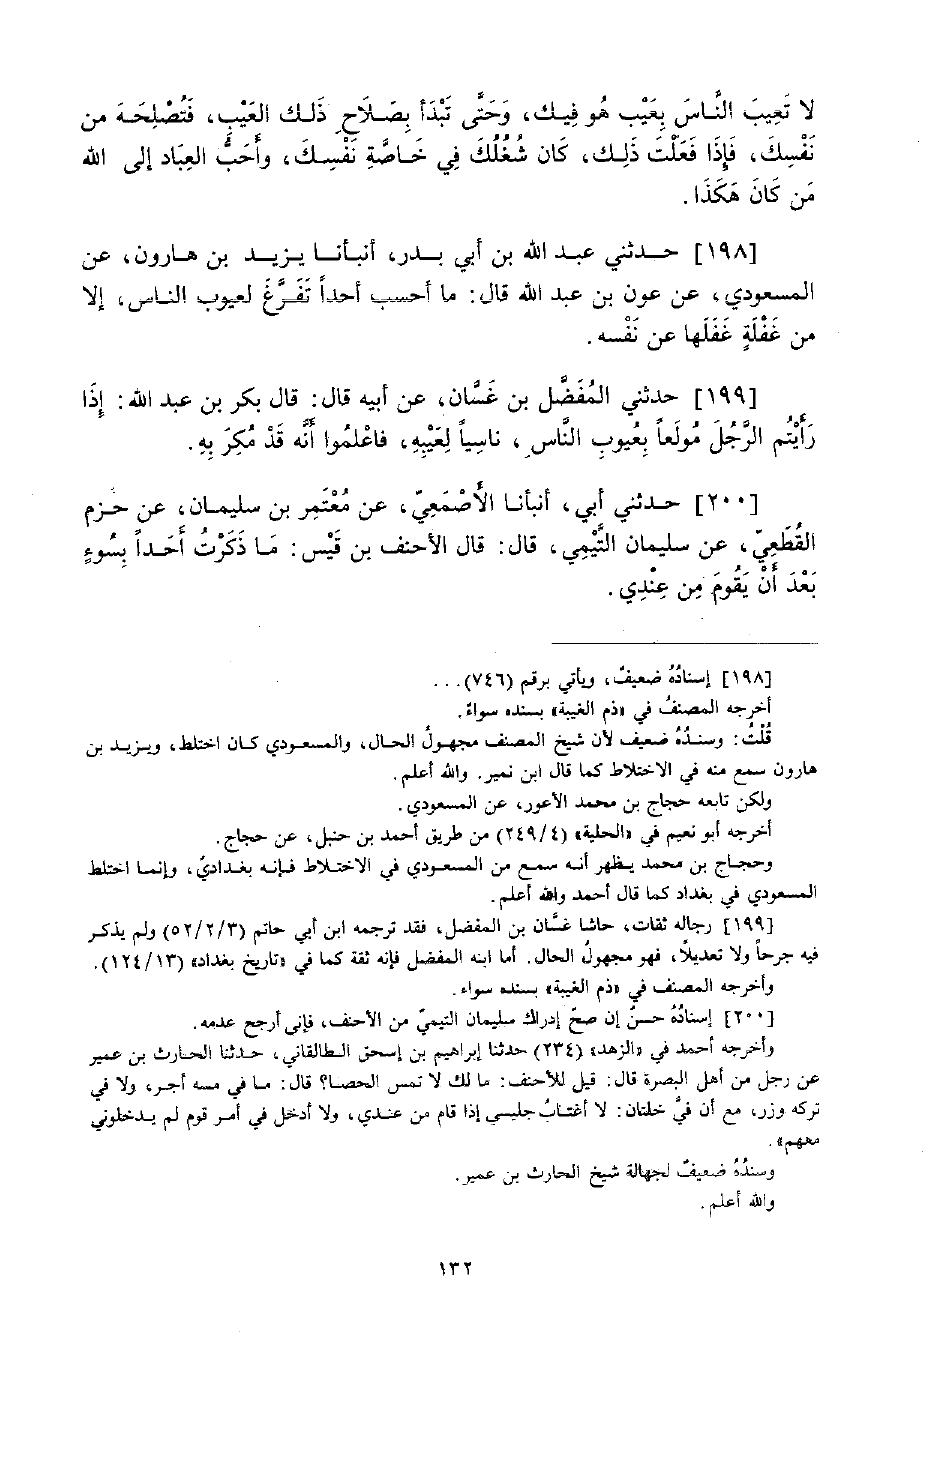 لا تَعِيبَ النَّاسَ بِعَيْب هُو فِيك، وَحَتَّى تَبْدَأ بِصَلَاحِ ذَلك العَيْبِ، فَتُصْلِحَهَ من
نَفْسِكَ، فَإِذَا فَعَلْتَ ذلِك، كَان شُغُلُكَ فِي خَاصَّةِ نَفْسِكَ، وأَحَبُّ العِبَاد إلى الله
مَن كَانَ هَكَذَا.
[١٩٨] حدثني عبد الله بن أبي بدر، أنبأنا يزيد بن هارون، عن
المسعودي، عن عون بن عبد الله قال: ما أحسب أحداً تَفَرَّغَ لعيوب الناس، إلا
من غَفْلَةٍ غَفَلَها عن نَفْسه.
[١٩٩] حدثني المُفَضَّل بن غَسَّان، عن أبيه قال: قال بكر بن عبد الله: إِذَا
رَأَيْتُم الرَّجُلَ مُولَعاً بِعُيوبِ النَّاسِ، نَاسِياً لِعَيْبِهِ، فاعْلمُوا أنَّه قَدْ مُكِرَ بِهِ.
[٢٠٠] حدثني أبي، أنبأنا الأَصْمَعِيّ، عن مُعْتَمِر بن سليمان، عن حَزم
القُطَعِيّ، عن سليمان التَّيْمِي، قال: قال الأحنف بن قَيْس: مَا ذَكَرْتُ أَحَداً بِسُوءٍ
بَعْدَ أَنْ يَقُومَ مِن عِنْدِي.
[١٩٨] إسنادُهُ ضعيفٌ، ويأتي برقم (٧٤٦)...
أخرجه المصنفُ في «ذم الغيبة» بسنده سواءً.
قُلْتُ: وسندُهُ ضعيف لأن شيخ المصنف مجهولُ الحال، والمسعودي كان اختلط، ويزيد بن
هارون سمع منه في الاختلاط كما قال ابن نمير. والله أعلم.
ولكن تابعه حجاج بن محمد الأعور، عن المسعودي.
أخرجه أبو نعيم في «الحلية» (٢٤٩/٤) من طريق أحمد بن حنبل، عن حجاج.
وحجاج بن محمد يظهر أنه سمع من المسعودي في الاختلاط فإنه بغداديٌ، وإنما اختلط
المسعودي في بغداد كما قال أحمد والله أعلم.
[١٩٩] رجاله ثقات، حاشا غسَّان بن المفضل، فقد ترجمه ابن أبي حاتم (٥٢/٢/٣) ولم يذكر
فيه جرحاً ولا تعديلاً، فهو مجهولُ الحال. أما ابنه المفضل فإنه ثقة كما في «تاريخ بغداد» (١٢٤/١٣).
وأخرجه المصنف في «ذم الغيبة» بسنده سواء.
[٢٠٠] إسنادُهُ حسنٌ إن صحَّ إدراك سليمان التيميّ من الأحنف، فإني أرجع عدمه.
وأخرجه أحمد في «الزهد» (٢٣٤) حدثنا إبراهيم بن إسحق الطالقاني، حدثنا الحارث بن عمير
عن رجل من أهل البصرة قال: قيل للأحنف: ما لك لا تمس الحصا؟ قال: ما في مسه أجر، ولا في
تركه وزر، مع أن فيَّ خلتان: لا أغتابُ جليسى إذا قام من عندي، ولا أدخل في أمر قوم لم يدخلوني
معهم».
وسندُهُ ضعيفٌ لجهالة شيخ الحارث بن عمير.
والله أعلم.
١٣٢